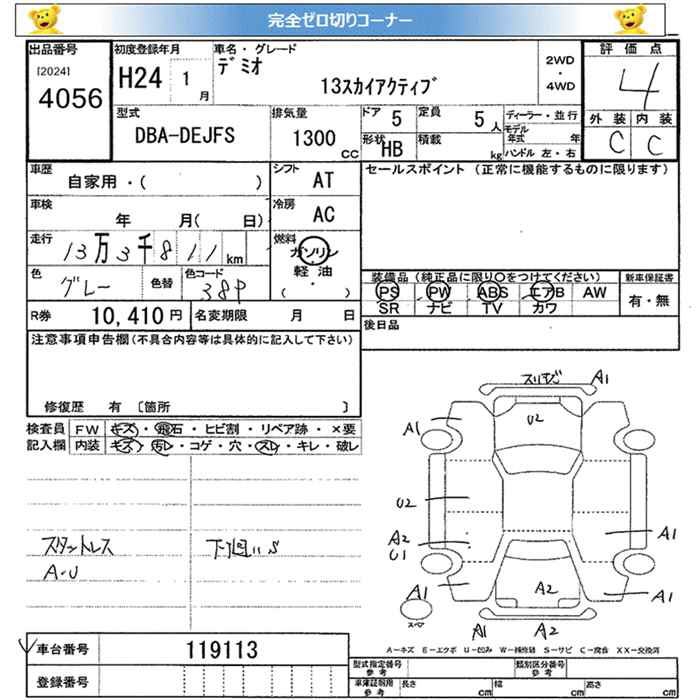 完全ゼロ切りコーナー
出品番号
[2024]
4056
初度登録年月
H24 1月
車名・グレード
デミオ
13スカイアクティブ
2WD
・
4WD
評価点
4
外装 内装
C C
型式
DBA-DEJFS
排気量
1300 CC
ドア 5
定員 5人
形状 HB
積載 kg
ディーラー・並行
モデル年式 年
ハンドル 左・右
車歴
自家用・( )
シフト AT
車検
年 月( 日)
冷房 AC
走行
13万3千811km
燃料
ガソリン
・
軽油
( )
色
グレー
色替
色コード
38P
セールスポイント (正常に機能するものに限ります)
装備品 (純正品に限り○をつけてください)
PS PW ABS エアB AW
SR ナビ TV カワ
新車保証書
有・無
R券 10,410円
名変期限 月 日
後日品
注意事項申告欄(不具合内容等は具体的に記入して下さい)
修復歴 有 [箇所 ]
検査員
記入欄
FW キズ・飛石・ヒビ割・リペア跡・×要
内装 キズ・汚レ・コゲ・穴・スレ・キレ・破レ
スタットレス
A-U
下廻りS
スリキズ A1
A1
U2
U2
A2
U1
A1
A1
A2
A1
スペア
A1 A2
A-キズ E-エクボ U-凹み W-補修跡 S-サビ C-腐食 XX-交換済
車台番号 119113
登録番号
型式指定番号
参考
類別区分番号
参考
車庫証明用
参考
長さ cm
幅 cm
高さ cm